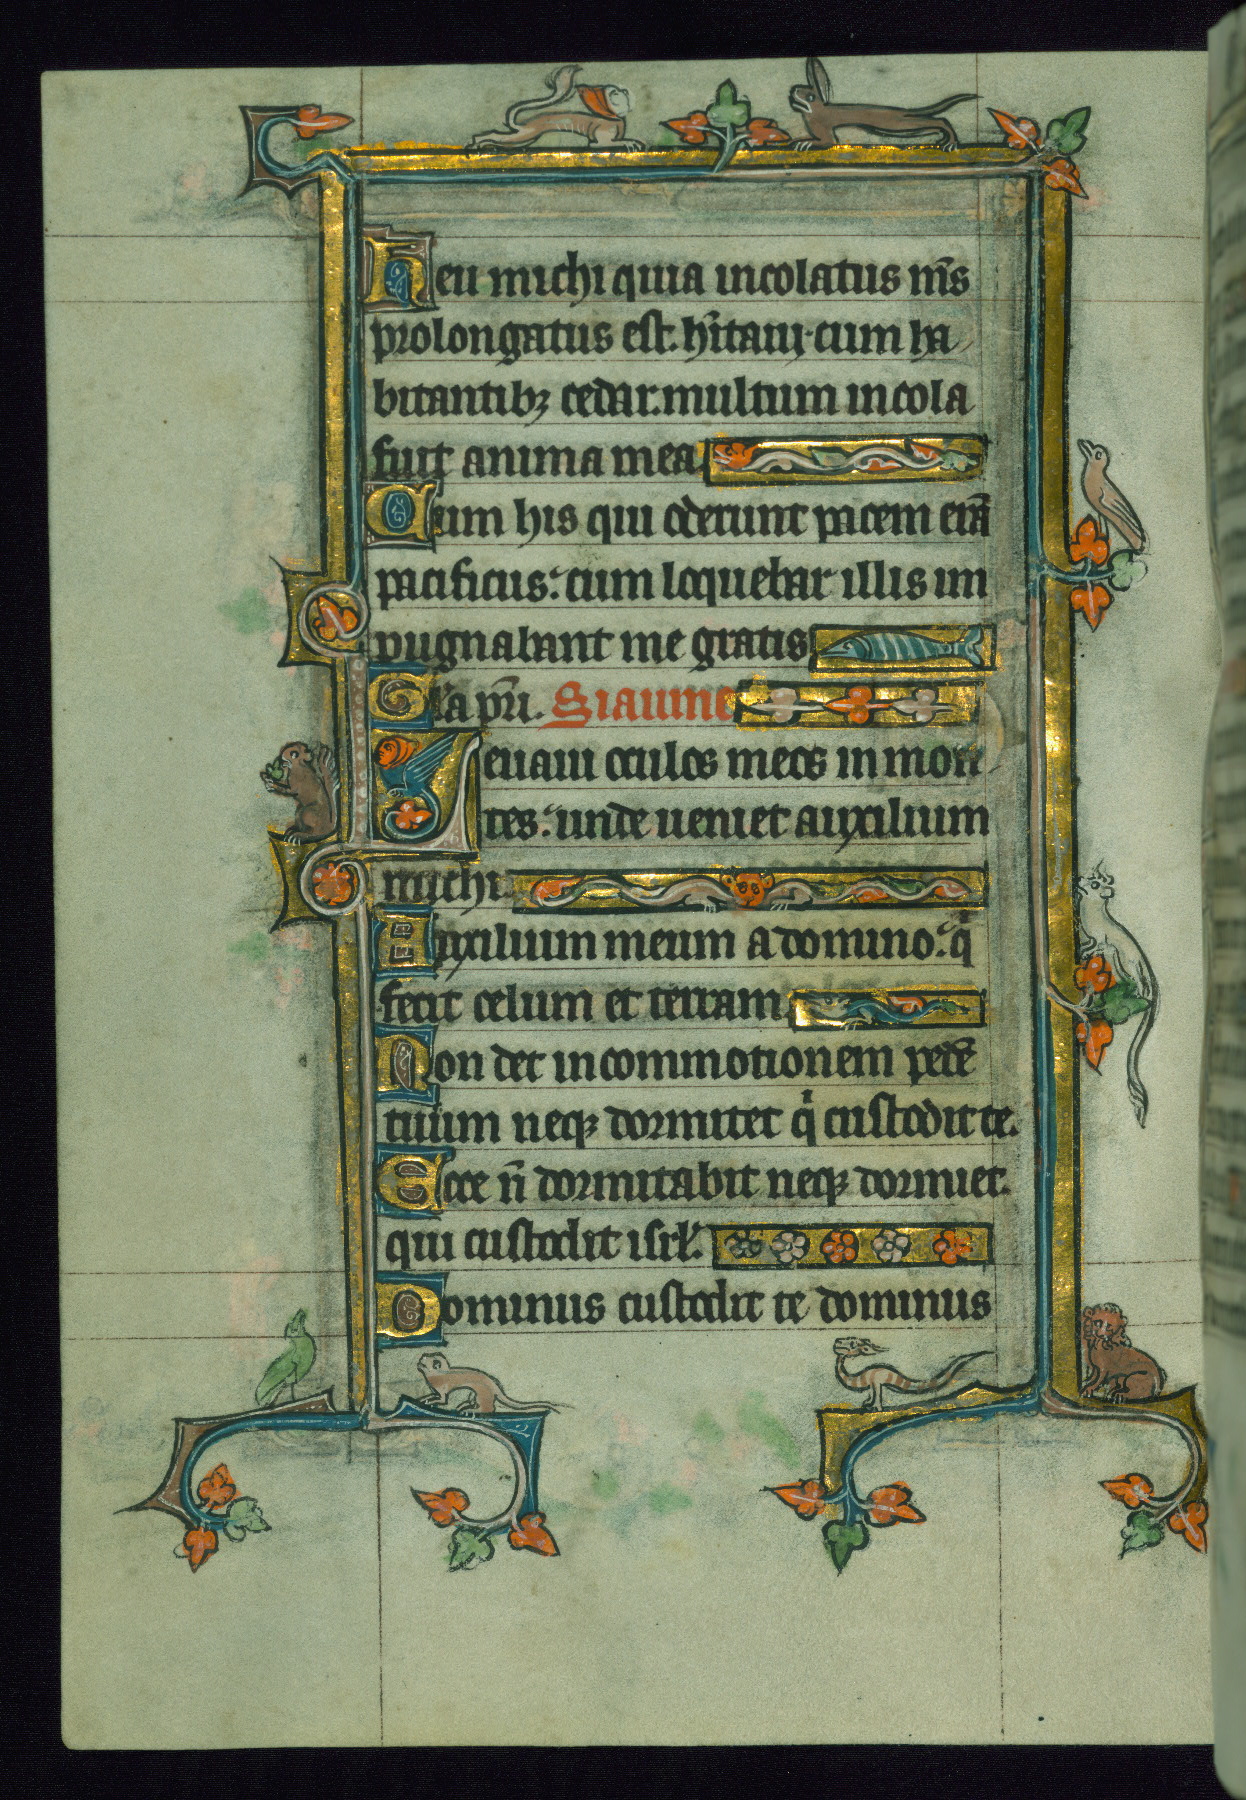 Heu michi quia incolatus m̃s
prolongatus est. h̃itaui cum ha
bitantibꝫ cedar. multum incola
fuit anima mea
Cum his qui oderunt pacem erã
pacificus: cum loquebar illis im
pugnabant me gratis
Gl̃a pr̃i. Siaume
Leuaui oculos meos in mon
tes: unde ueniet auxilium
michi.
Auxilium meum a domino: qͥ
fecit celum et terram
Non det in commotionem pedẽ
tuum neqꝫ dormitet qͥ custodit te.
Ecce ñ dormitabit neqꝫ dormiet.
qui custodit isrl̃.
Dominus custodit te dominus